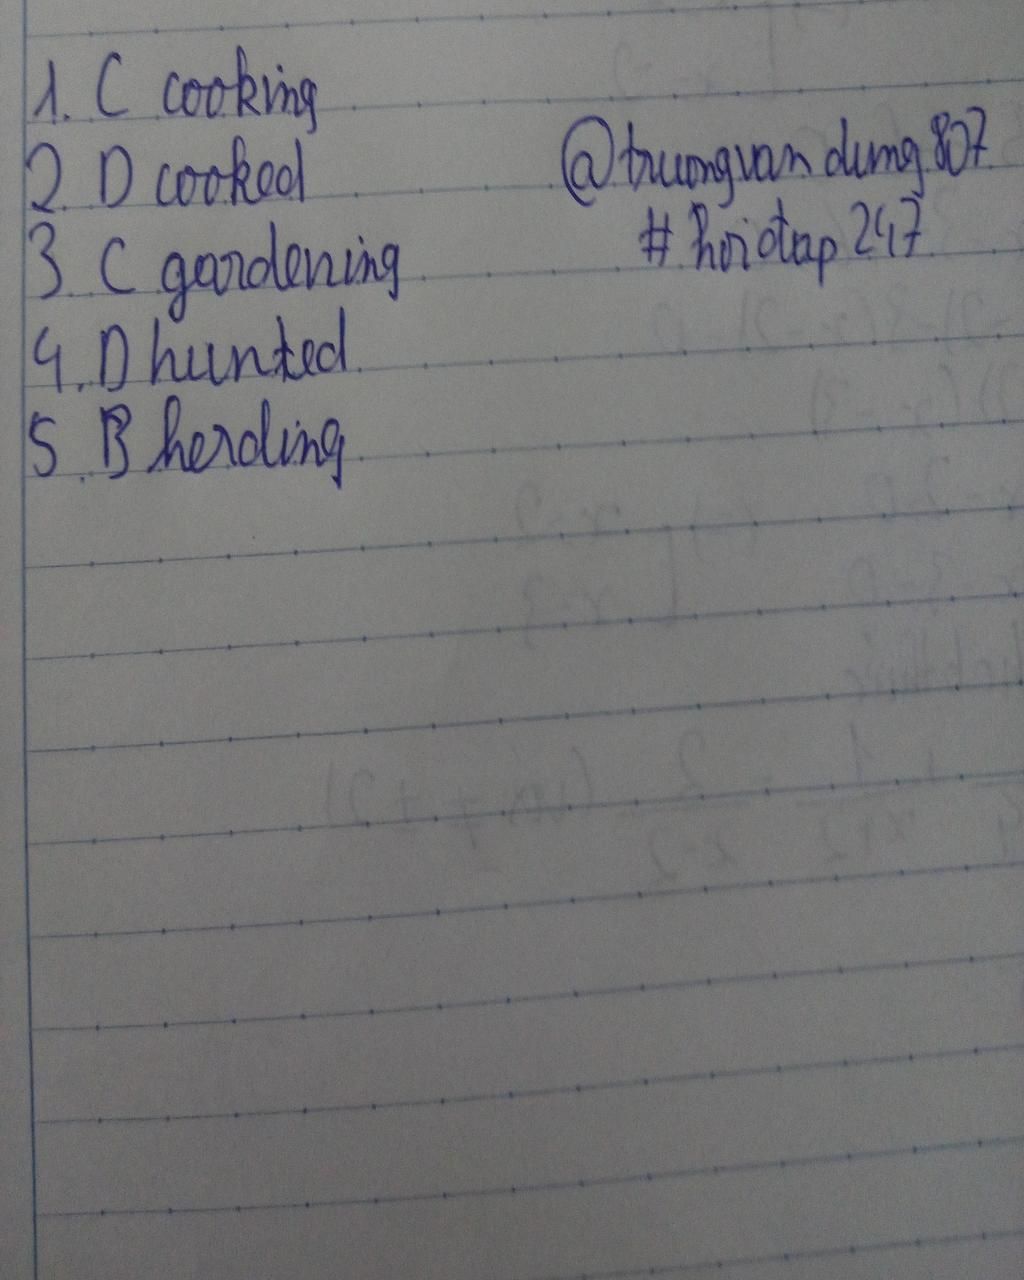 1. C cooking
2. D cooked
@truongvandung807
3. C gardening
#hoidap247
4. D hunted
5. B herding